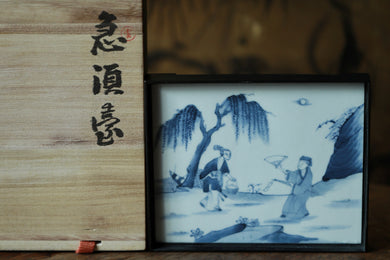 急須臺